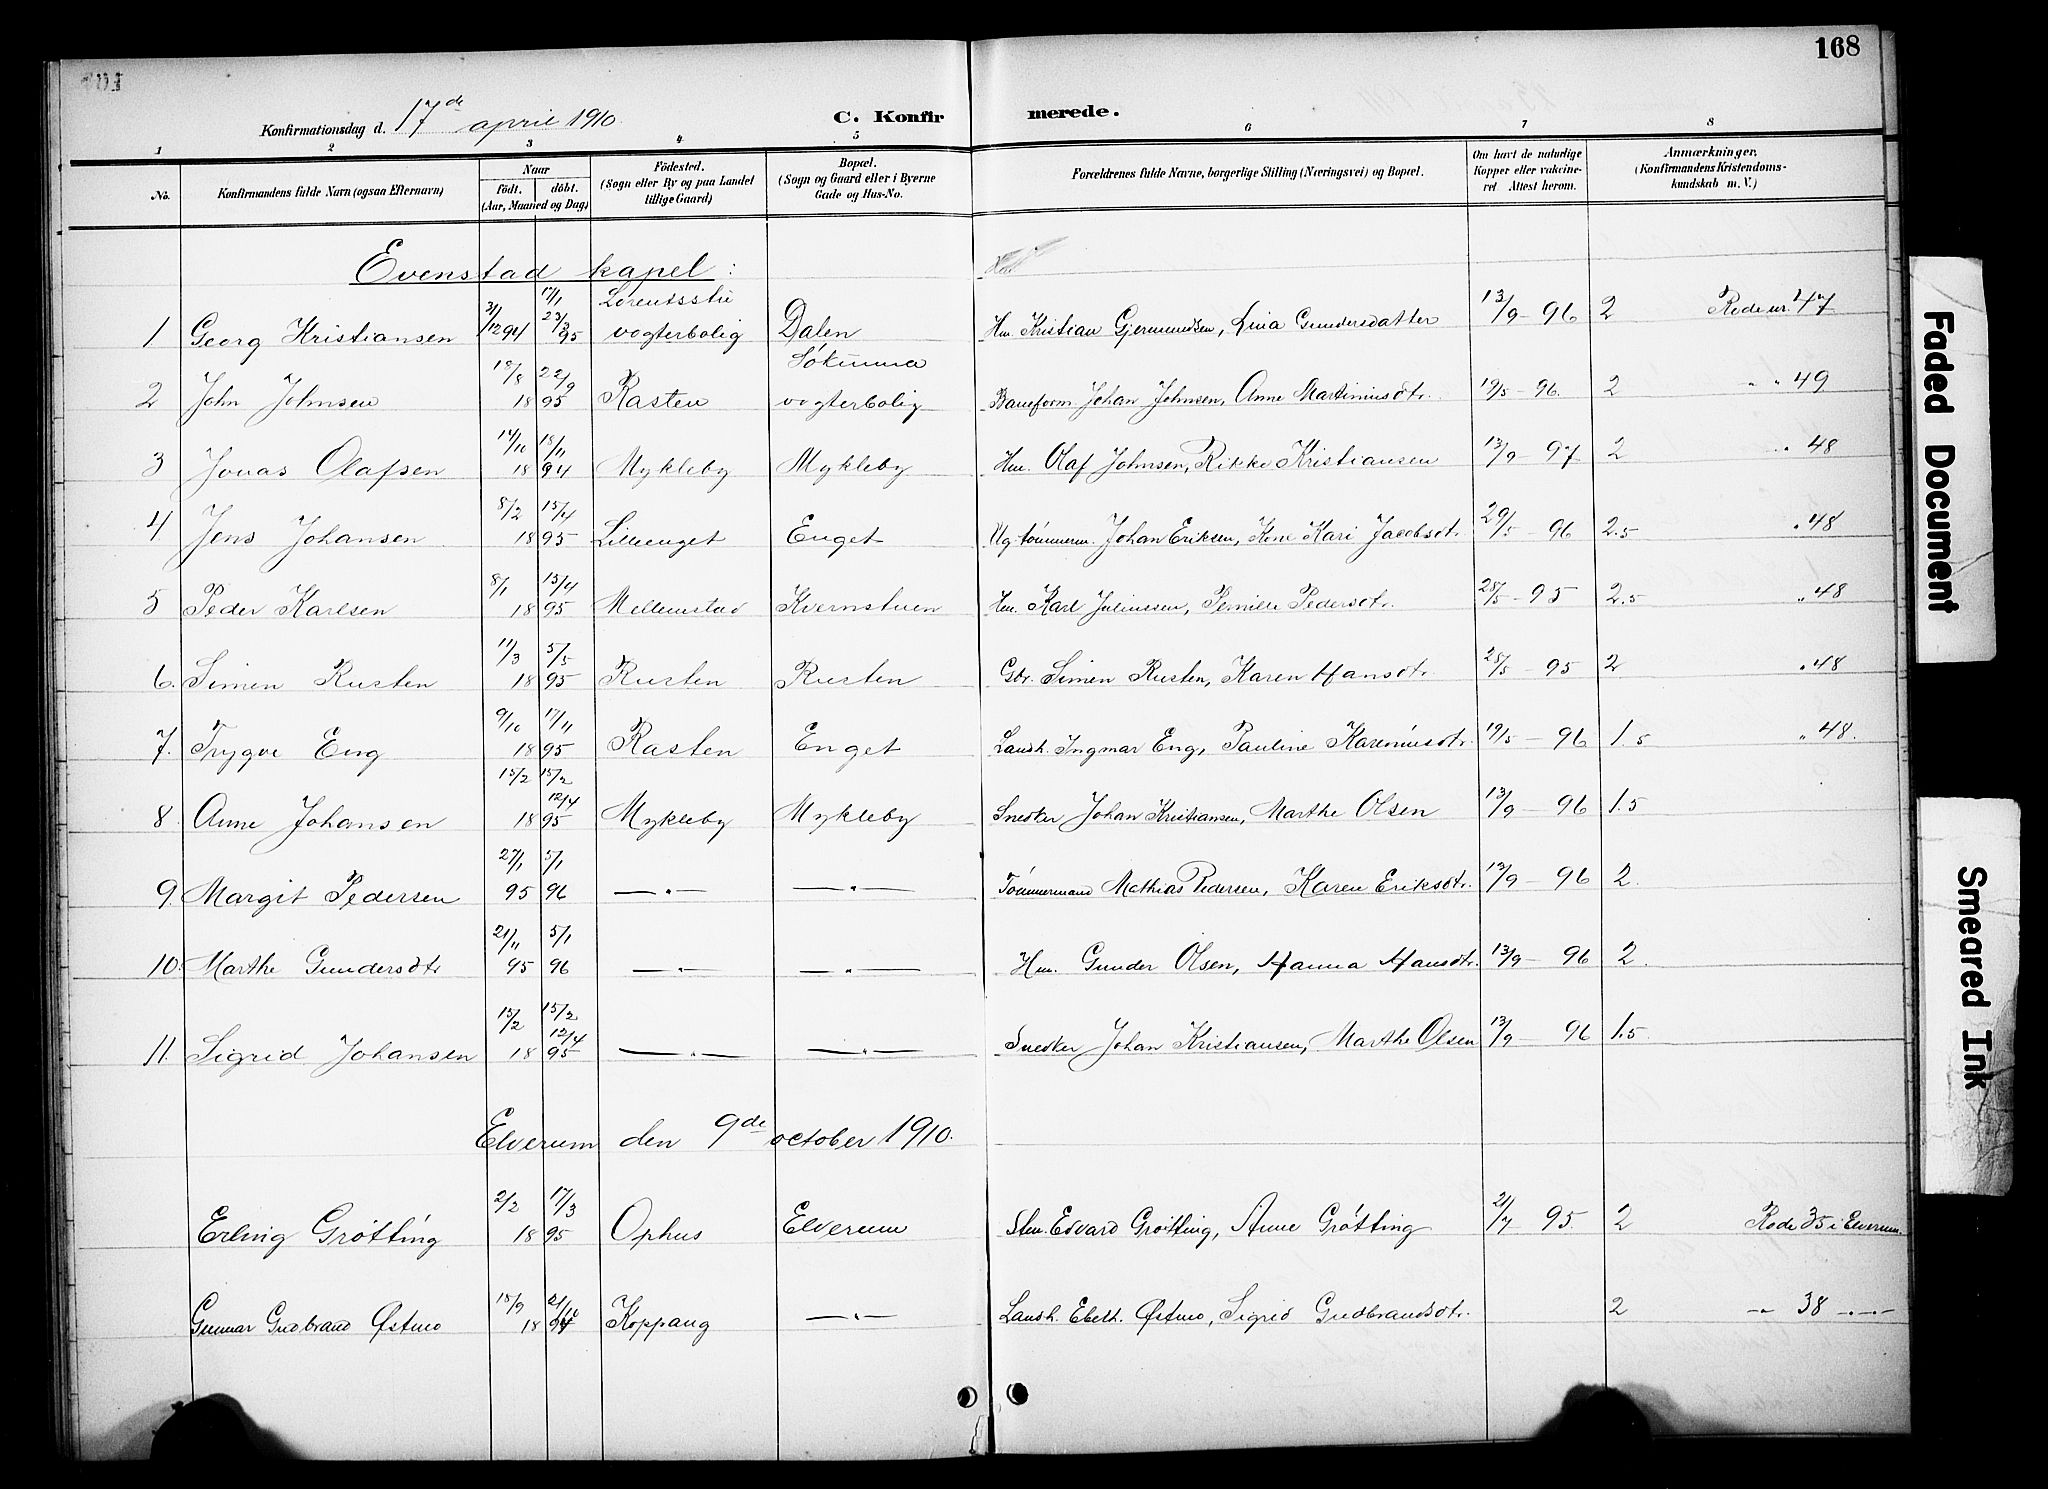 168
Konfirmationsdag d. 17de april 1910.
C. Konfirmerede.
1 2 3 4 5 6 7 8
No.
Konfirmandens fulde Navn (ogsaa Efternavn)
Naar
födt. döbt.
(Aar, Maaned og Dag)
Födested.
(Sogn eller By og paa Landet
tillige Gaard)
Bopæl.
(Sogn og Gaard eller i Byerne
Gade og Hus-No.
Forældrenes fulde Navne, borgerlige Stilling (Næringsvei) og Bopæl.
Om havt de naturlige
Kopper eller vakcine-
ret. Attest herom.
Anmærkninger.
(Konfirmandens Kristendoms-
kundskab m. V.)
Evenstad kapel:
1 Georg Kristiansen 31/12 94 17/1 23/3 95 Lorentsstu vogterbolig Dalen Hm. Kristian Gjermundsen, Lina Gundersdatter 13/9 - 96 2 Rode nr. 47
2 John Johnsen 18/8 22/9 18 95 Rasten Søkunna vogterbolig Baneform. Johan Johnsen, Anne Martiniusdtr. 19/5 - 96. 2 " " 49
3 Jonas Olafsen 14/10 18/11 18 94 Mykleby Mykleby Hm. Olaf Johnsen, Rikke Kristiansen 13/9 - 97 2 " 48
4 Jens Johansen 8/2 15/4 18 95 Lilleenget Enget Ug. tømmerm. Johan Eriksen, Kone Kari Jacobsdt. 29/5 - 96 2.5 " 48
5 Peder Karlsen 8/1 15/4 18 95 Mellemstad Kvernstuen Hm. Karl Juliussen, Pernille Pedersdtr. 28/5 - 95 2.5 " 48
6. Simen Rusten 11/3 5/5 18 95 Rusten Rusten Gbr. Simen Rusten, Karen Hansdtr. 28/5 - 95 2 " 48
7. Trygve Eng 9/10 17/11 18 95 Rasten Enget Landh. Ingmar Eng, Pauline Kareniusdtr. 19/5 - 96 1.5 " 48.
8. Anne Johansen 15/2 15/2 12/4 18 95 Mykleby Mykleby Snedker Johan Kristiansen, Marthe Olsen 13/9 - 96 1.5
9. Margit Pedersen 27/1 5/1 95 96 — " — — " — Tömmermand Mathias Pedersen, Karen Eriksdtr. 13/9 - 96 2.
10. Marthe Gundersdtr 21/11 5/1 95 96 — " — — " — Hm. Gunder Olsen, Hanna Hansdtr. 13/9 - 96 2.
11. Sigrid Johansen 15/2 15/2 12/4 18 95 — " — — " — Snedker Johan Kristiansen, Marthe Olsen 13/9 - 96 1.5
Elverum den 9de october 1910.
Erling Grötting 2/2 17/3 18 95 Ophus Elverum Stm. Edvard Grötting, Anne Grötting 21/7 - 95. 2 Rode 35 i Elverum.
Gunnar Gudbrand Østmo 15/9 21/10 18 94 Koppang — " — Landh. Ebeth. Østmo, Sigrid Gudbrandsdtr. 2 — " — 38 — " —
Faded Document
Smeared Ink